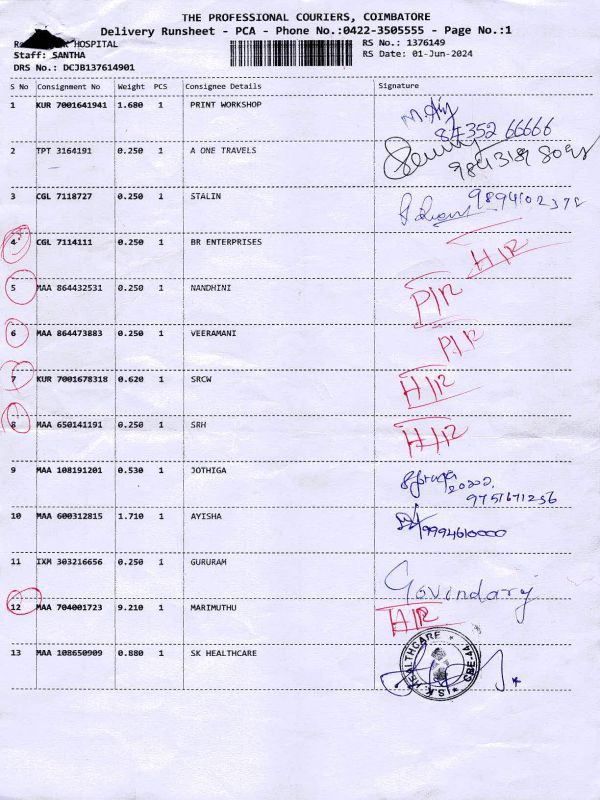 THE PROFESSIONAL COURIERS, COIMBATORE
Delivery Runsheet - PCA - Phone No.:0422-3505555 - Page No.:1
HOSPITAL
RS No.: 1376149
Staff: SANTHA
RS Date: 01-Jun-2024
DRS No.: DCJB137614901
S No Consignment No Weight PCS Consignee Details Signature
1 KUR 7001641941 1.680 1 PRINT WORKSHOP
84352 66666
2 TPT 3164191 0.250 1 A ONE TRAVELS
3 CGL 7118727 0.250 1 STALIN
4 CGL 7114111 0.250 1 BR ENTERPRISES H/R
5 MAA 864432531 0.250 1 NANDHINI P/R
6 MAA 864473883 0.250 1 VEERAMANI P/R
7 KUR 7001678318 0.620 1 SRCW H/R
8 MAA 650141191 0.250 1 SRH H/R
9 MAA 108191201 0.530 1 JOTHIGA
9751671256
10 MAA 600312815 1.710 1 AYISHA 9994610000
11 IXM 303216656 0.250 1 GURURAM Govindaraj
12 MAA 704001723 9.210 1 MARIMUTHU H/R
13 MAA 108650909 0.880 1 SK HEALTHCARE
S.K. HEALTHCARE * CBE-44 *